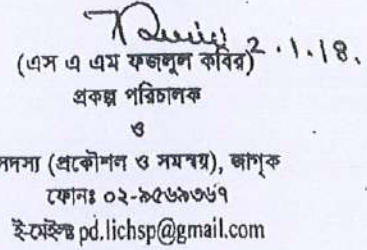 2.1.18.
(এস এ এম ফজলুল কবির)
প্রকল্প পরিচালক
ও
সদস্য (প্রকৌশল ও সমন্বয়), জাগৃক
ফোনঃ ০২-৯৫৬৯৩৬৭
ই-মেইলঃ pd.lichsp@gmail.com